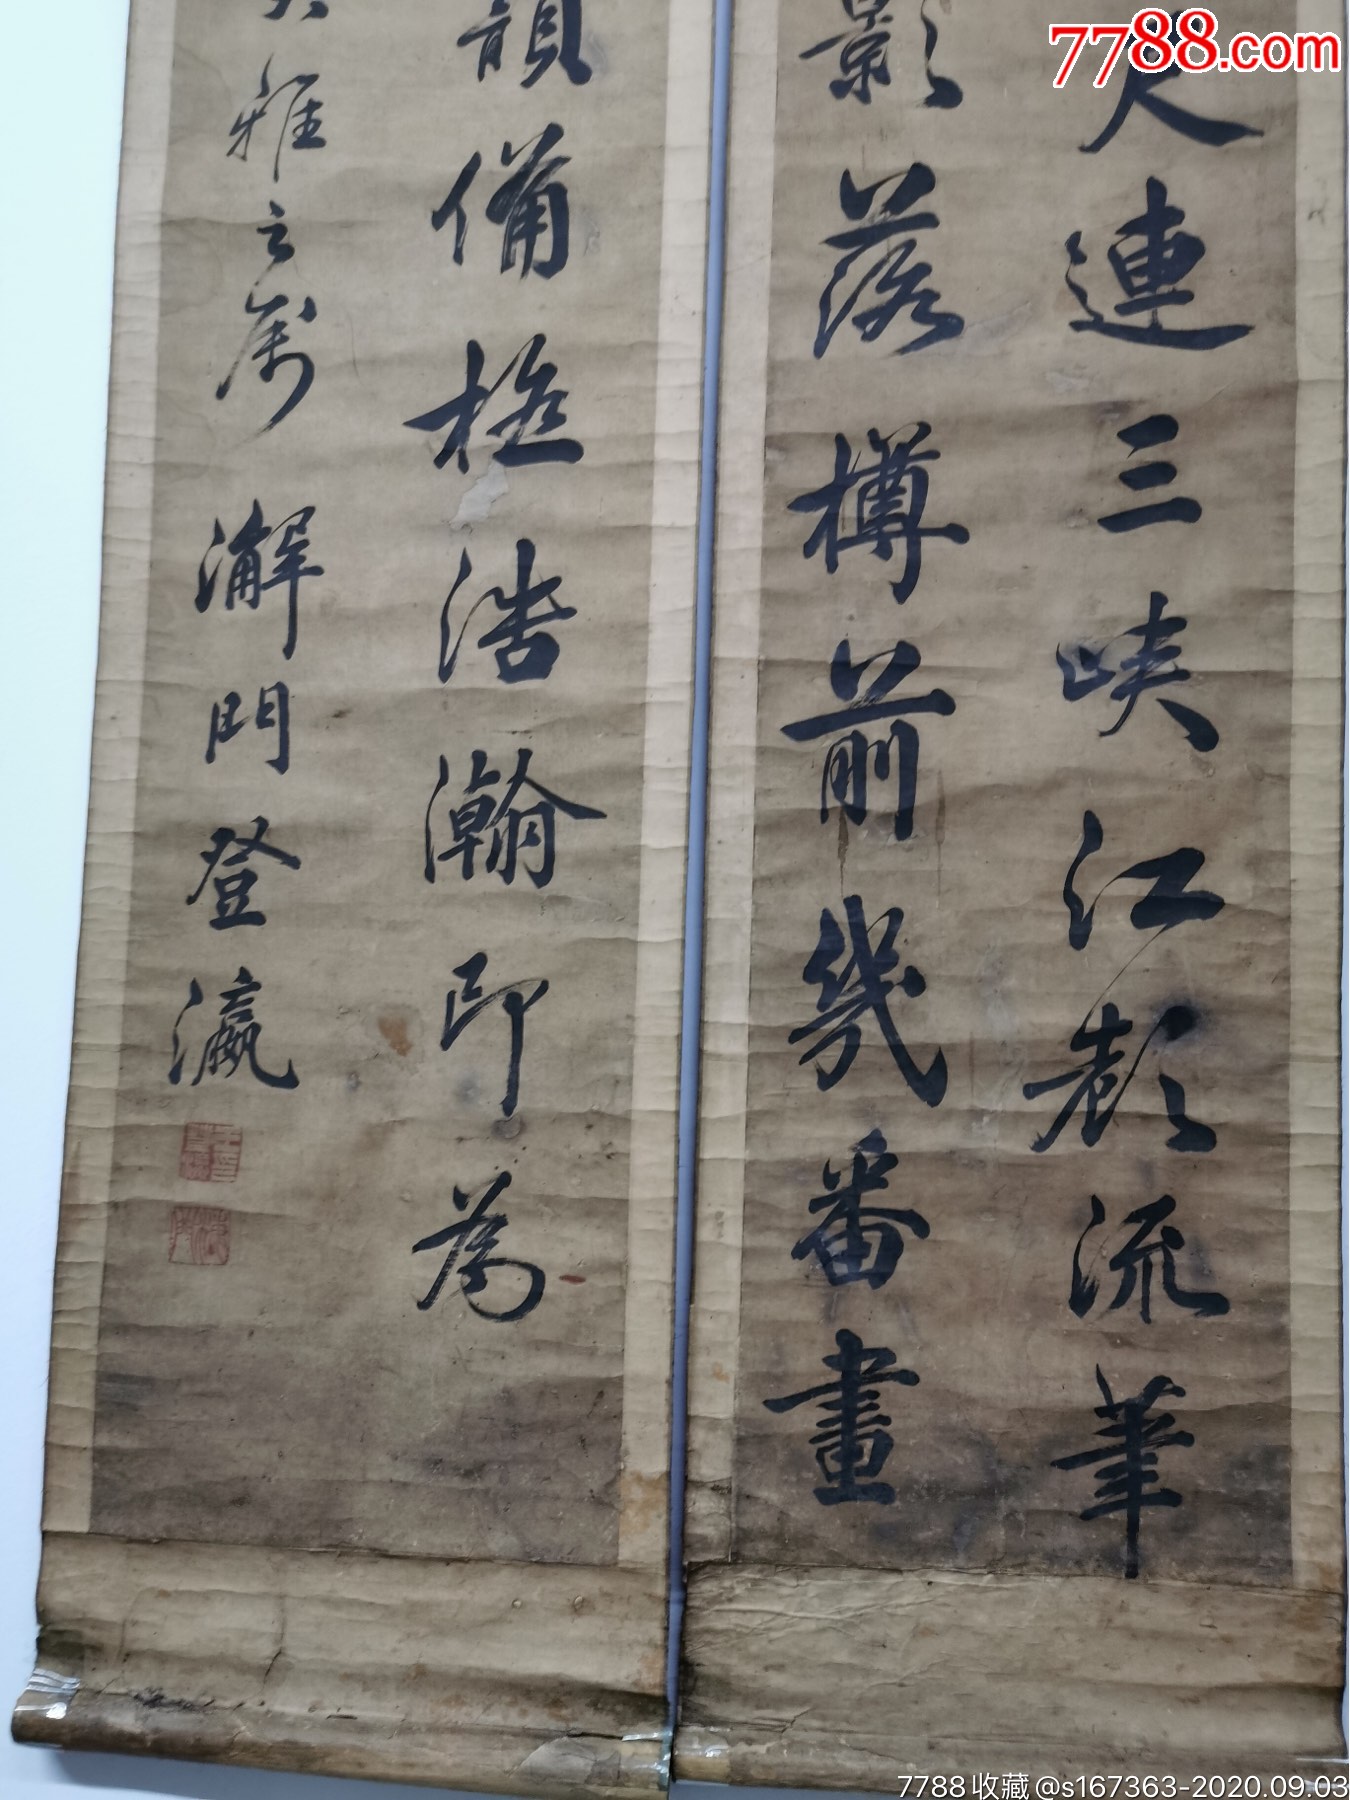 連三峽江流筆
影落樽前幾番畫
韻備極浩瀚即為
雅之屬 澥門登瀛
7788.com
7788收藏@s167363-2020.09.03